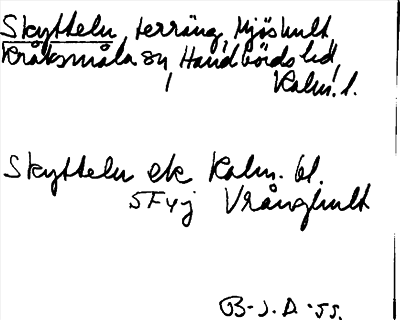 Skytteln, terräng, Mjöshult,
Kråksmåla sn, Handbörds hd,
Kalm. l.
Skytteln ek Kalm. bl.
5F4j Vrånghult
B-J.D. -55.